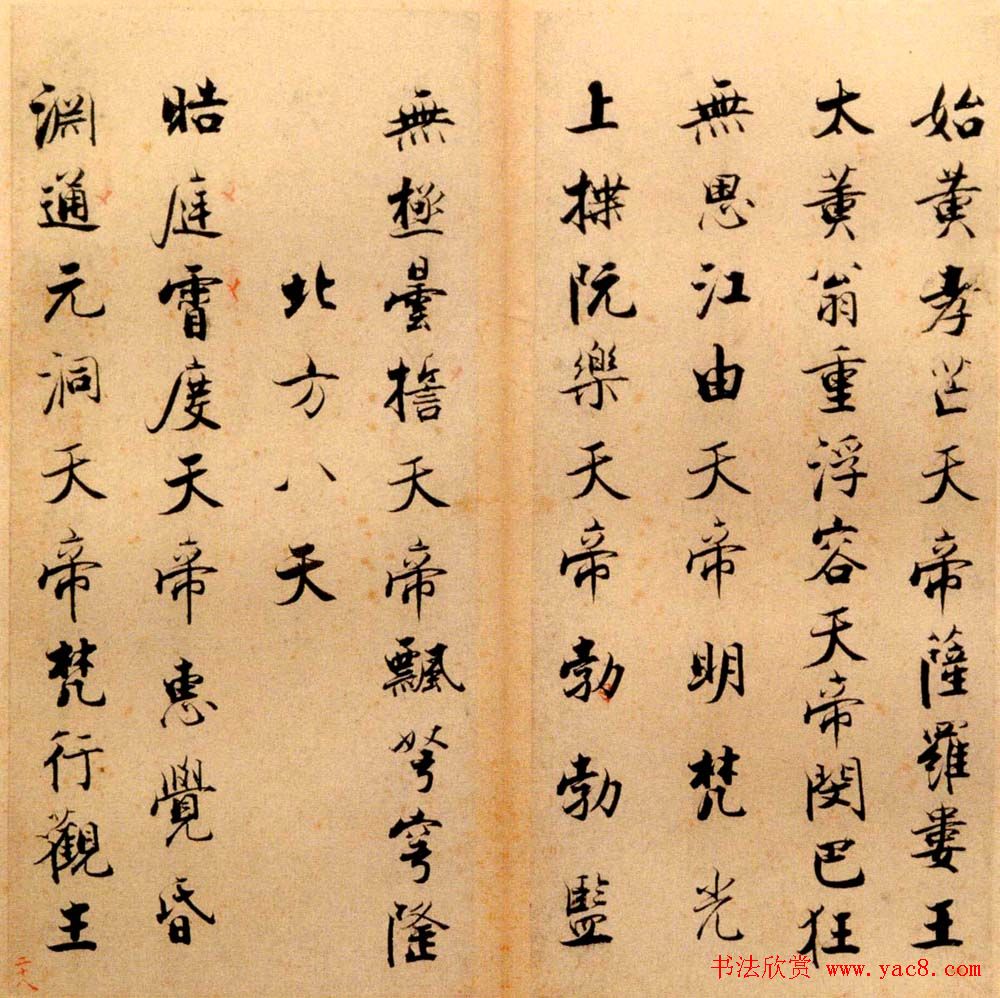 始黄孝芒天帝薩羅婁王
太黄翁重浮容天帝閔巴狂
無思江由天帝明梵光
上揲阮樂天帝勃勃監
無極曇誓天帝飄弩穹隆
北方八天
皓庭霄度天帝惠覺昏
淵通元洞天帝梵行觀生
二十八
书法欣赏 www.yac8.com